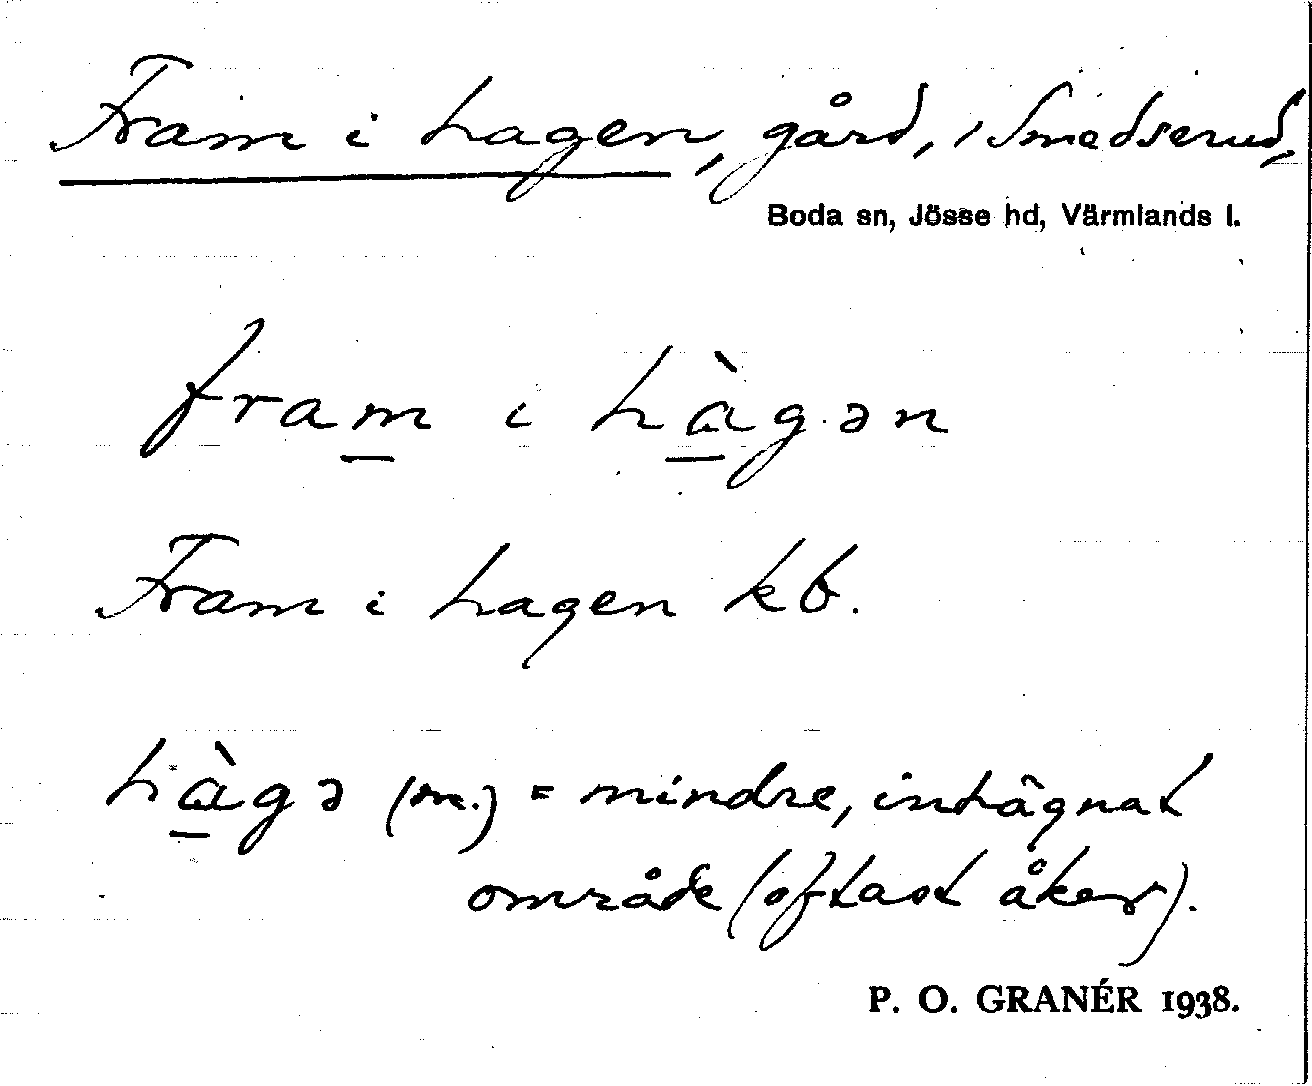 Fram i hagen, gård, i Smedserud,
Boda sn, Jösse hd, Värmlands l.
fram i hàgən
Fram i hagen kb.
hàgə (m.) = mindre, inhägnat
område (oftast åker).
P. O. GRANÉR 1938.